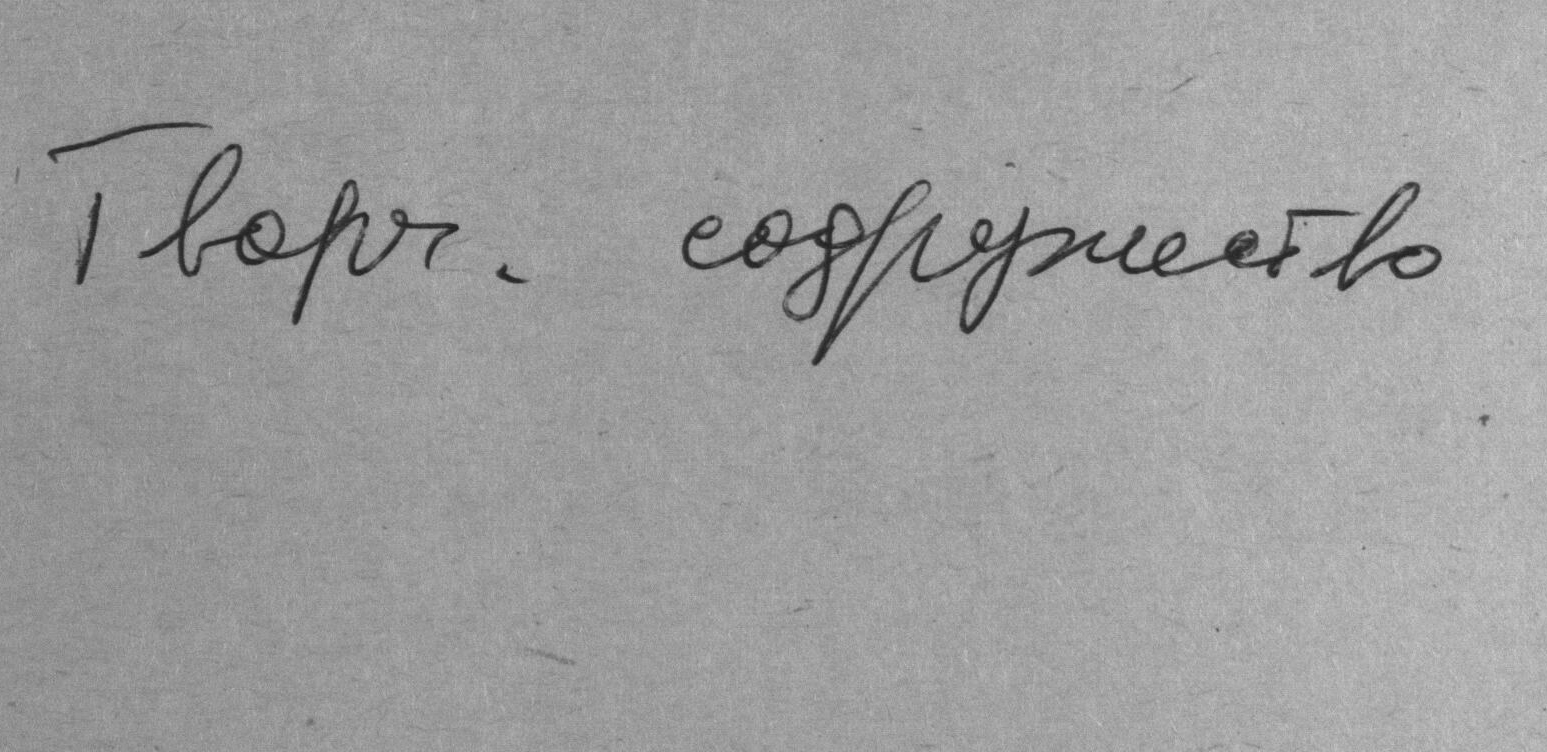 Творч. содружество